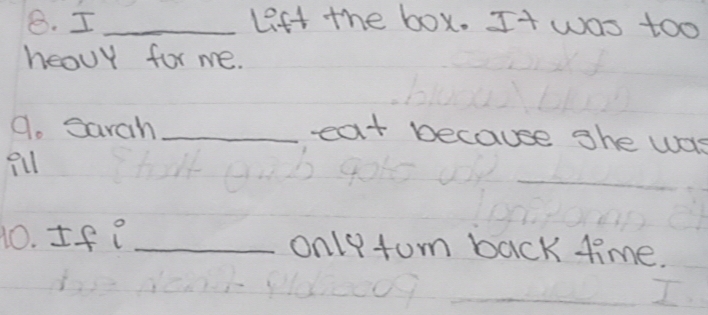 8. I ________ Lift the box. It was too
heavy for me.
9. Sarah ________ eat because she was
ill
10. If i ________ only turn back time.